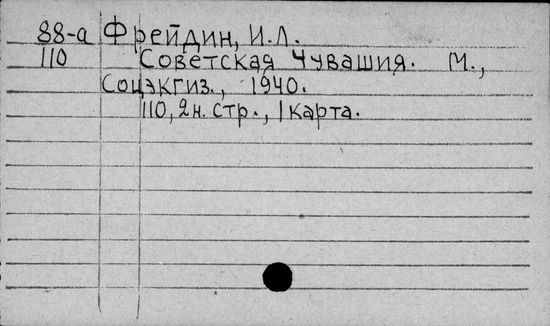 88-а Фрейдин, И.Л.
110 Советская Чувашия. М.,
Соцэкгиз., 1940.
110, 2н. стр., 1 карта.